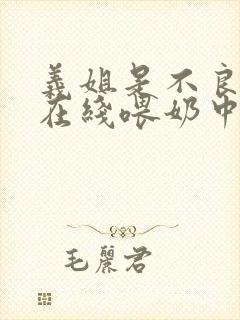 義姐是不良
在綫喂奶中
毛麗君